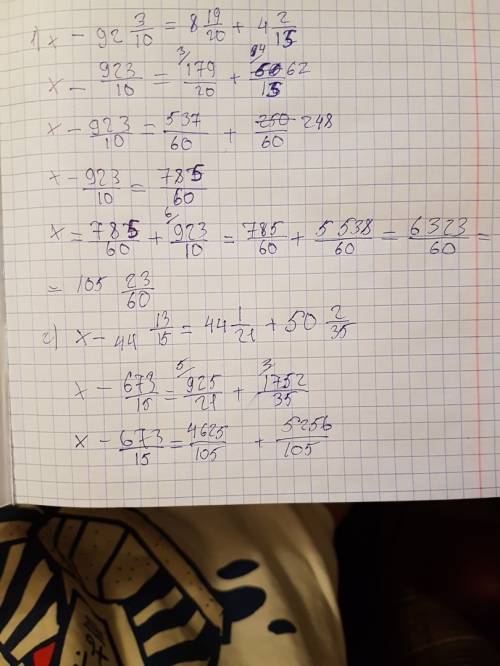 1) x - 92 3/10 = 8 19/20 + 4 2/15
x - 923/10 = 179/20 + 62/15
x - 923/10 = 537/60 + 248/60
x - 923/10 = 785/60
x = 785/60 + 923/10 = 785/60 + 5538/60 = 6323/60 =
= 105 23/60
2) x - 44 13/15 = 44 1/21 + 50 2/35
x - 673/15 = 925/21 + 1752/35
x - 673/15 = 4625/105 + 5256/105